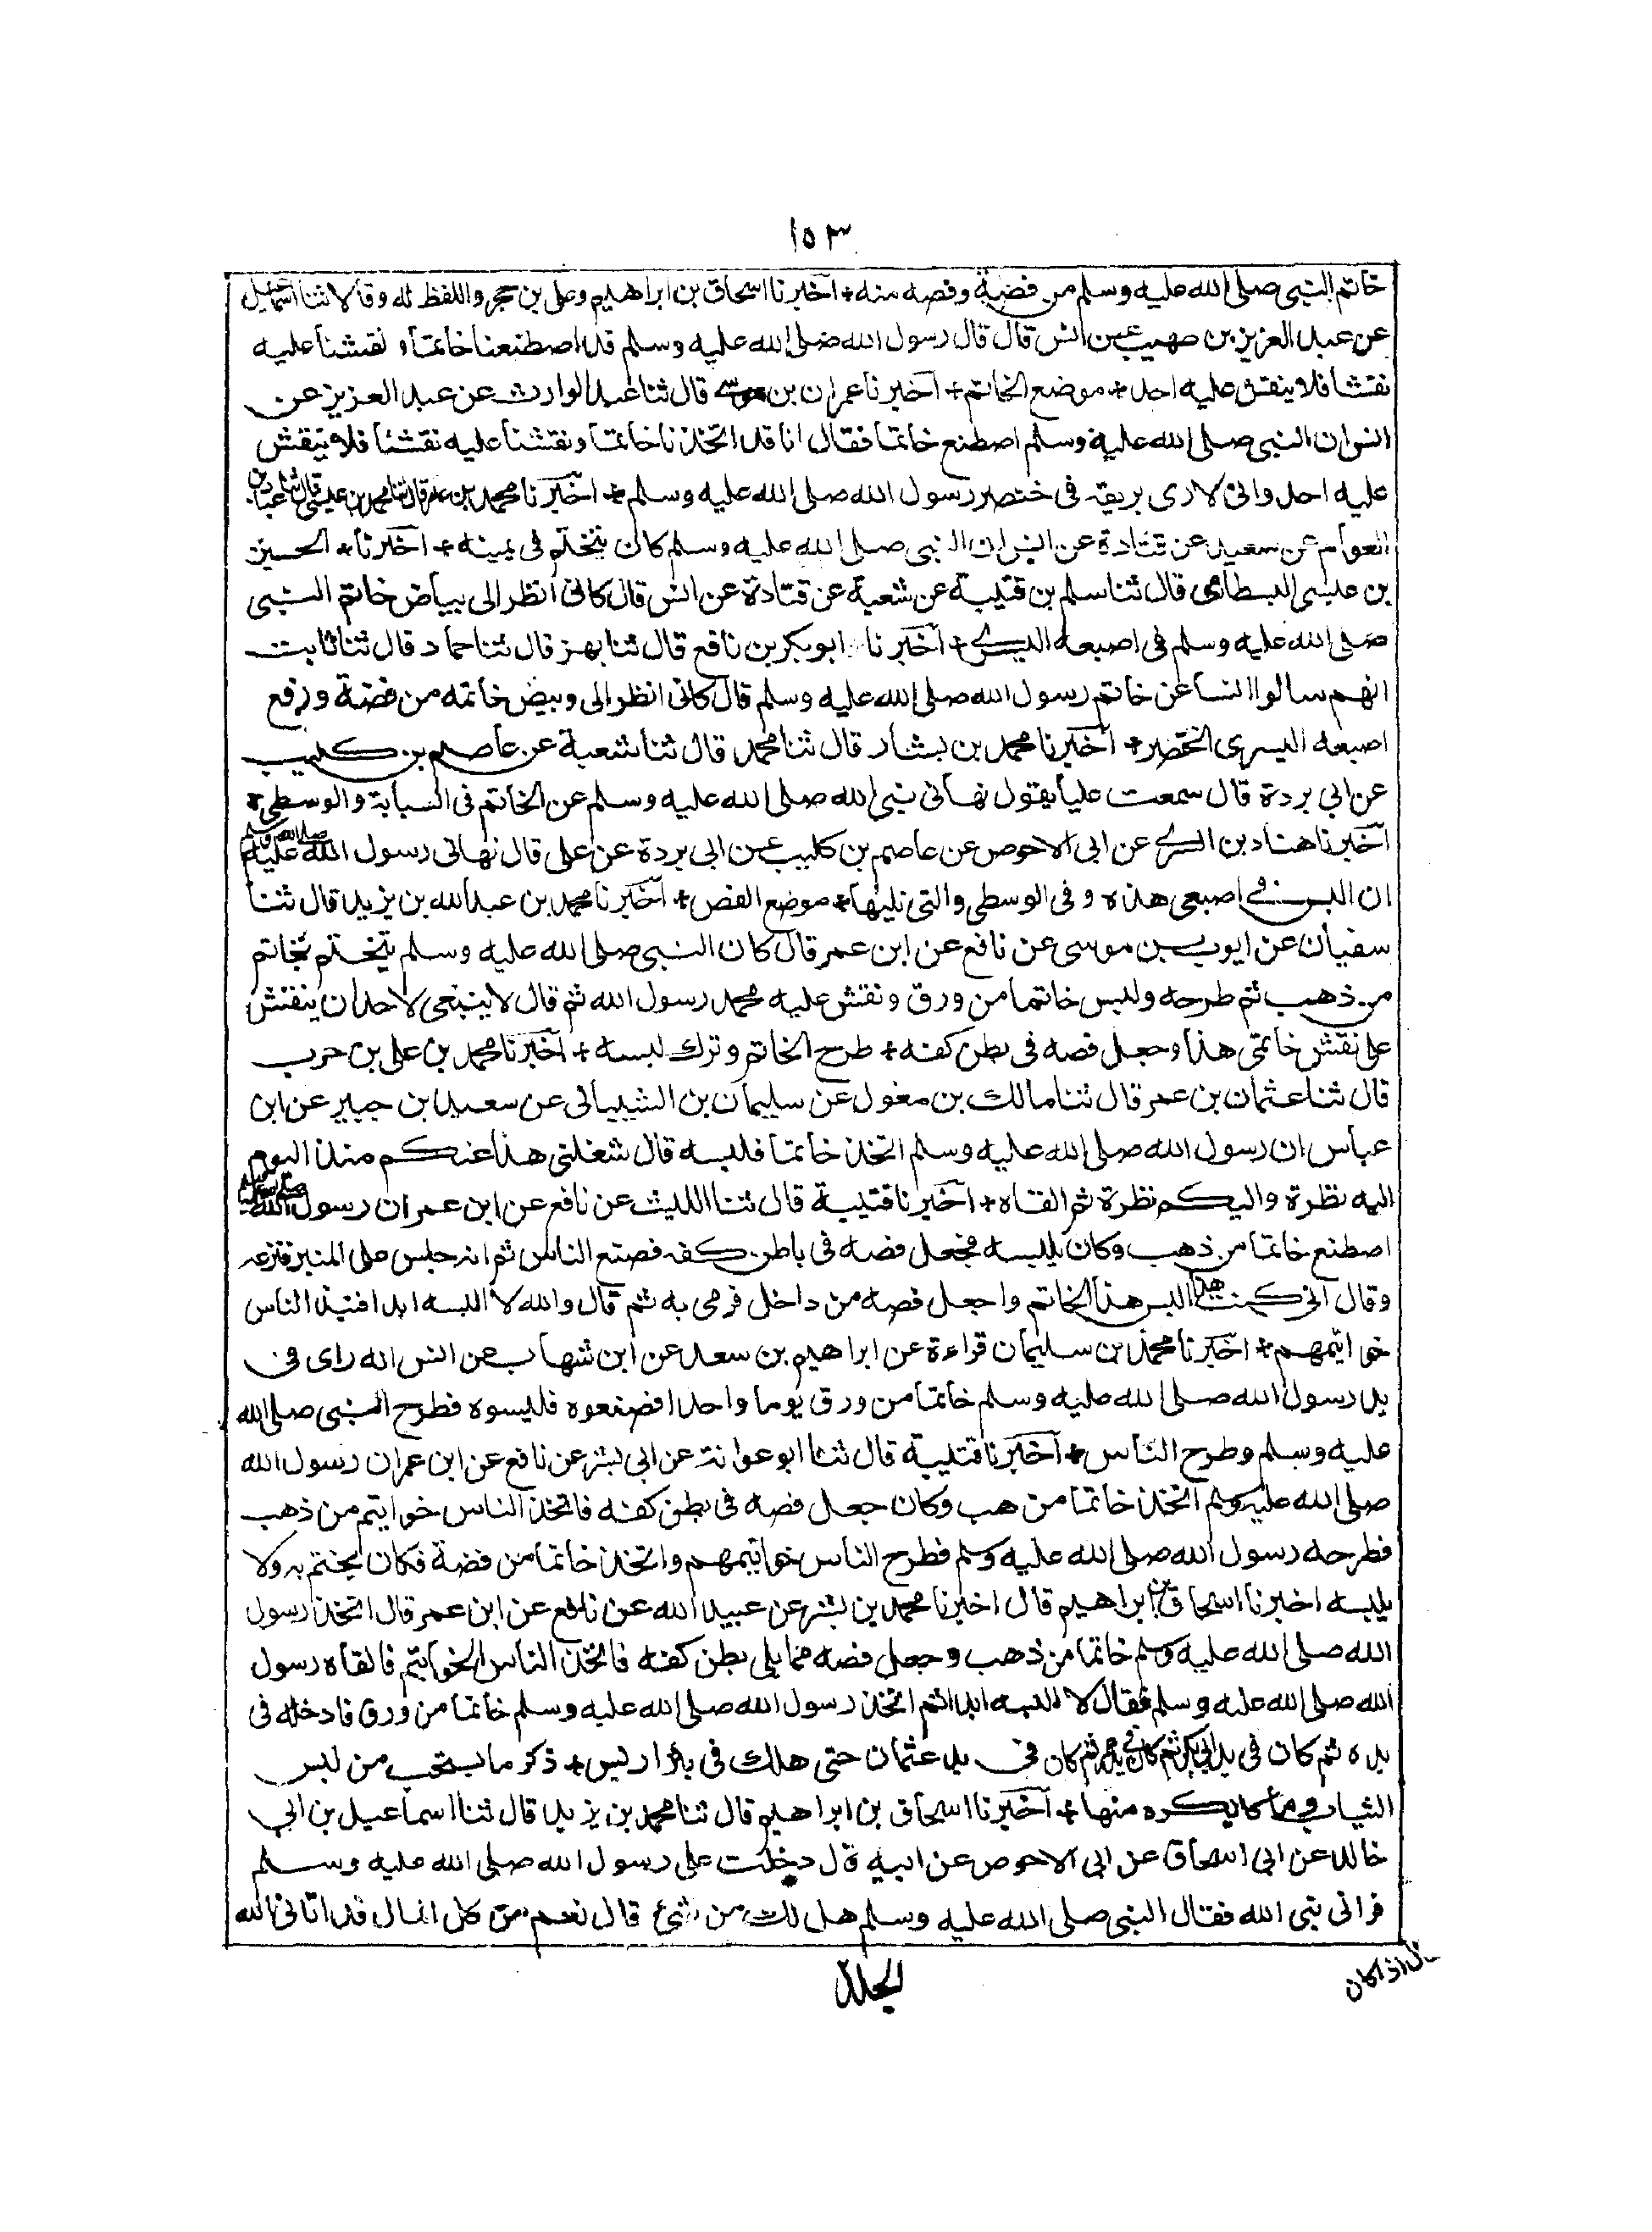 ١٥٣
خاتم النبى صلى الله عليه وسلم من فضة وفصه منه + اخبرنا اسحاق بن ابراهيم وعلى بن حجر واللفظ له وقالا ثنا اسماعيل
عن عبد العزيز بن صهيب عن انس قال قال رسول الله صلى الله عليه وسلم قد اصطنعنا خاتما و نقشنا عليه
نقشا فلا ينقش عليه احد + موضع الخاتم + اخبرنا عمران بن موسى قال ثنا عبد الوارث عن عبد العزيز عن
انس ان النبى صلى الله عليه وسلم اصطنع خاتما فقال انا قد اتخذنا خاتما ونقشنا عليه نقشا فلا ينقش
عليه احد وانى لارى بريقه فى خنصر رسول الله صلى الله عليه وسلم + اخبرنا محمد بن عامر قال ثنا محمد بن عيسى قال ثنا عباد بن
العوام عن سعيد عن قتادة عن انس ان النبى صلى الله عليه وسلم كان يتختم فى يمينه + اخبرنا + الحسين
بن عيسى البسطامى قال ثنا سلم بن قتيبة عن شعبة عن قتادة عن انس قال كانى انظر الى بياض خاتم النبى
صلى الله عليه وسلم فى اصبعه اليسرى + اخبرنا ابو بكر بن نافع قال ثنا بهز قال ثنا حماد قال ثنا ثابت
انهم سالوا انسا عن خاتم رسول الله صلى الله عليه وسلم قال كانى انظر الى وبيض خاتمه من فضة ورفع
اصبعه اليسرى الخنصر + اخبرنا محمد بن بشار قال ثنا محمد قال ثنا شعبة عن عاصم بن كليب
عن ابى بردة قال سمعت عليا يقول نهانى نبى الله صلى الله عليه وسلم عن الخاتم فى السبابة والوسطى +
اخبرنا هناد بن السرى عن ابى الاحوص عن عاصم بن كليب عن ابى بردة عن على قال نهانى رسول الله صلى الله عليه وسلم
ان البس فى اصبعى هذه و فى الوسطى والتى تليها + موضع الفص + اخبرنا محمد بن عبد الله بن يزيد قال ثنا
سفيان عن ايوب بن موسى عن نافع عن ابن عمر قال كان النبى صلى الله عليه وسلم يتختم بخاتم
من ذهب ثم طرحه ولبس خاتما من ورق و نقش عليه محمد رسول الله ثم قال لا ينبغى لاحد ان ينقش
على نقش خاتمى هذا وجعل فصه فى بطن كفه + طرح الخاتم وترك لبسه + اخبرنا محمد بن على بن حرب
قال ثنا عثمان بن عمر قال ثنا مالك بن مغول عن سليمان بن الشيبانى عن سعيد ابن جبير عن ابن
عباس ان رسول الله صلى الله عليه وسلم اتخذ خاتما فلبسه قال شغلنى هذا عنكم منذ اليوم
اليه نظرة واليكم نظرة ثم القاه + اخبرنا قتيبة قال ثنا الليث عن نافع عن ابن عمر ان رسول الله صلى الله عليه وسلم
اصطنع خاتما من ذهب وكان يلبسه فجعل فصه فى باطن كفه فصنع الناس ثم انه جلس على المنبر فنزعه
وقال انى كنت البس هذا الخاتم واجعل فصه من داخل فرمى به ثم قال والله لا البسه ابدا فنبذ الناس
خواتيمهم + اخبرنا محمد بن سليمان قراءة عن ابراهيم بن سعد عن ابن شهاب عن انس انه راى فى
يد رسول الله صلى الله عليه وسلم خاتما من ورق يوما واحدا فصنعوه فلبسوه فطرح النبى صلى الله
عليه وسلم وطرح الناس + اخبرنا قتيبة قال ثنا ابو عوانة عن ابى بشر عن نافع عن ابن عمر ان رسول الله
صلى الله عليه وسلم اتخذ خاتما من هب وكان جعل فصه فى بطن كفه فاتخذ الناس خواتيم من ذهب
فطرحه رسول الله صلى الله عليه وسلم فطرح الناس خواتيمهم واتخذ خاتما من فضة فكان يختم به ولا
يلبسه اخبرنا اسحاق بن ابراهيم قال اخبرنا محمد بن بشر عن عبيد الله عن نافع عن ابن عمر قال اتخذ رسول
الله صلى الله عليه وسلم خاتما من ذهب وجعل فصه مما يلى بطن كفه فاتخذ الناس الخواتيم فالقاه رسول
الله صلى الله عليه وسلم فقال لا البسه ابدا ثم اتخذ رسول الله صلى الله عليه وسلم خاتما من ورق فادخله فى
يده ثم كان فى يد ابى بكر ثم كان فى يد عمر ثم كان فى يد عثمان حتى هلك فى بئر اريس + ذكر ما يستحب من لبس
الثياب وما يكره منها + اخبرنا اسحاق بن ابراهيم قال ثنا محمد بن يزيد قال ثنا اسماعيل بن ابى
خالد عن ابى اسحاق عن ابى الاحوص عن ابيه قال دخلت على رسول الله صلى الله عليه وسلم
فرانى نبى الله فقال النبى صلى الله عليه وسلم هل لك من شئ قال نعم من كل المال قد اتانى الله
اذ اكان